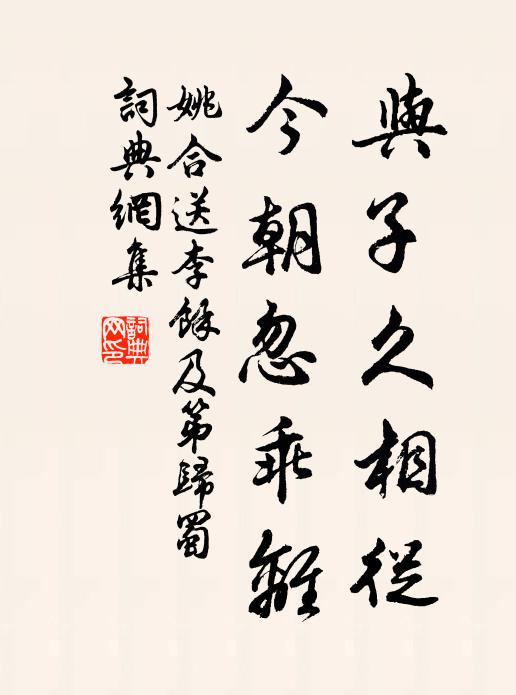 與子久相從
今朝忽乖離
姚合送李餘及第歸蜀
詞典網集
詞典
网印